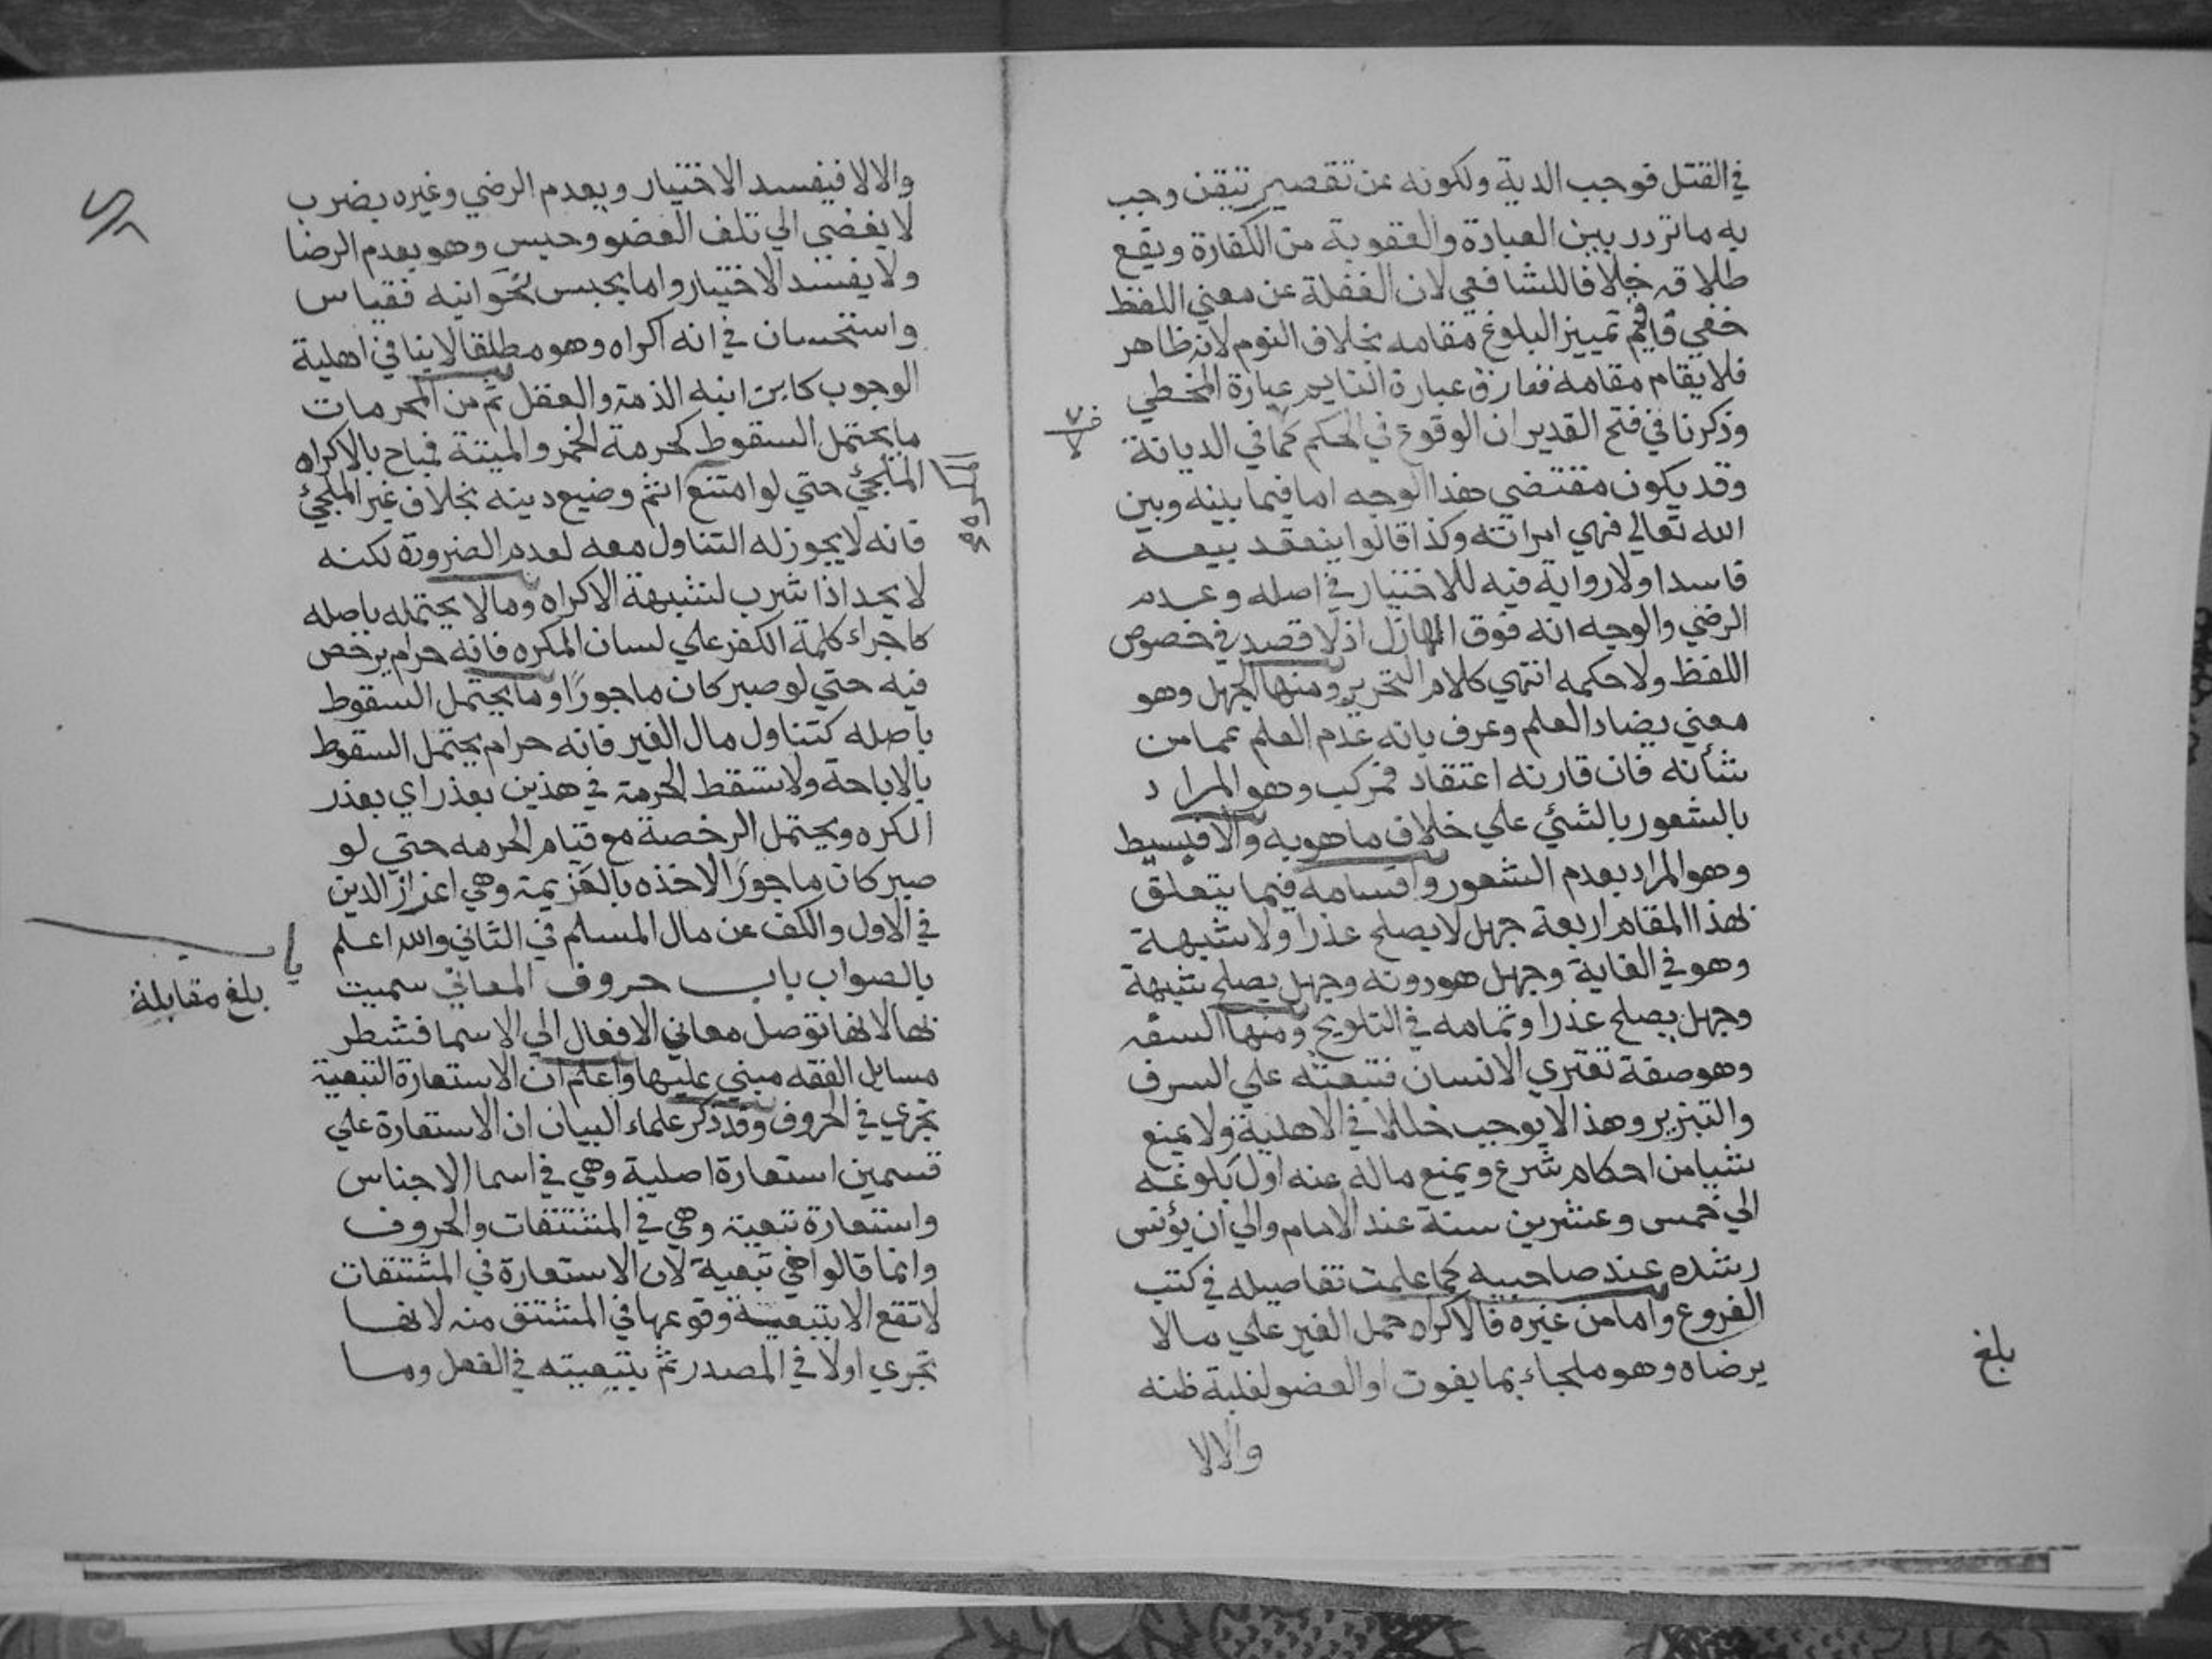 في القتل فوجب الدية ولكونه عن تقصير تيقن وجب
به ما تردد بين العبادة والعقوبة من الكفارة ويقع
طلاقه خلافا للشافعي لان الغفلة عن معني اللفظ
خفي فاقيم تمييز البلوغ مقامه بخلاف النوم لانه ظاهر
فلا يقام مقامه ففارق عبارة النايم عبارة المخطي
وذكرنا في فتح القدير ان الوقوع في الحكم كما في الديانة
وقد يكون مقتضي هذا الوجه اما فيما بينه وبين
الله تعالي فهي امراته وكذا قالوا ينعقد بيعه
فاسدا ولا رواية فيه للاختيار في اصله وعدم
الرضي والوجه انه فوق الهازل اذ لا قصد في خصوص
اللفظ ولا حكمه انتهي كلام التحرير ومنها الجهل وهو
معني يضاد العلم وعرف بانه عدم العلم عما من
شأنه فان قارنه اعتقاد فمركب وهو المراد
بالشعور بالشئ علي خلاف ما هو به والا فبسيط
وهو المراد بعدم الشعور واقسامه فيما يتعلق
بهذا المقام اربعة جهل لا يصلح عذرا ولا شبهة
وهو في الغاية وجهل هو دونه وجهل يصلح شبهة
وجهل يصلح عذرا وتمامه في التلويح ومنها السفه
وهو صفة تعتري الانسان فتبعثه علي السرف
والتبزير وهذا لا يوجب خللا في الاهلية ولا يمنع
شيا من احكام شرع ويمنع ماله عنه اول بلوغه
الي خمس وعشرين سنة عند الامام والي ان يؤنس
رشده عند صاحبيه كما علمت تفاصيله في كتب
الفروع واما من غيره فالاكراه حمل الغير علي ما لا
يرضاه وهو ملجاء بما يفوت او العضو لغلبة ظنه
والا لا
بلغ
والا لا فيفسد الاختيار ويعدم الرضي وغيره بضرب
لا يفضي الي تلف العضو وحبس وهو يعدم الرضا
ولا يفسد الاختيار واما بحبس نحو ابنه فقياس
واستحسان في انه اكراه وهو مطلقا لا ينافي اهلية
الوجوب كابن ابنه الذمة والعقل ثم من المحرمات
ما يحتمل السقوط كحرمة الخمر والميتة فيباح بالاكراه
الملجئ حتي لو امتنع اثم وضيع دينه بخلاف غير الملجئ
فانه لا يجوز له التناول معه لعدم الضرورة لكنه
لا يحد اذا شرب لشبهة الاكراه وما لا يحتمله باصله
كاجراء كلمة الكفر علي لسان المكره فانه حرام يرخص
فيه حتي لو صبر كان ماجورًا وما يحتمل السقوط
باصله كتناول مال الغير فانه حرام يحتمل السقوط
بالاباحة ولا تسقط الحرمة في هذين بعذر اي بعذر
الكره ويحتمل الرخصة مع قيام الحرمه حتي لو
صبر كان ماجورًا لاخذه بالعزيمة وهي اعزاز الدين
في الاول والكف عن مال المسلم في الثاني والله اعلم
بالصواب باب حروف المعاني سميت
بها لانها توصل معاني الافعال الي الاسما فشطر
مسايل الفقه مبني عليها واعلم ان الاستعارة التبعية
تجري في الحروف وقد ذكر علماء البيان ان الاستعارة علي
قسمين استعارة اصلية وهي في اسما الاجناس
واستعارة تبعية وهي في المشتقات والحروف
وانما قالوا هي تبعية لان الاستعارة في المشتقات
لا تقع الا بتبعية وقوعها في المشتق منه لانها
تجري اولا في المصدر ثم بتبعيته في الفعل وما
بلغ مقابلة